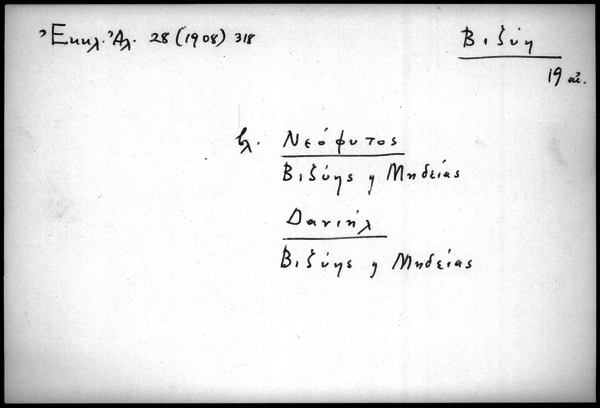 Ἐκκλ. Ἀλ. 28 (1908) 318
Βιζύη
19 αἰ.
βλ. Νεόφυτος
Βιζύης ϗ Μηδείας
Δανιήλ
Βιζύης ϗ Μηδείας